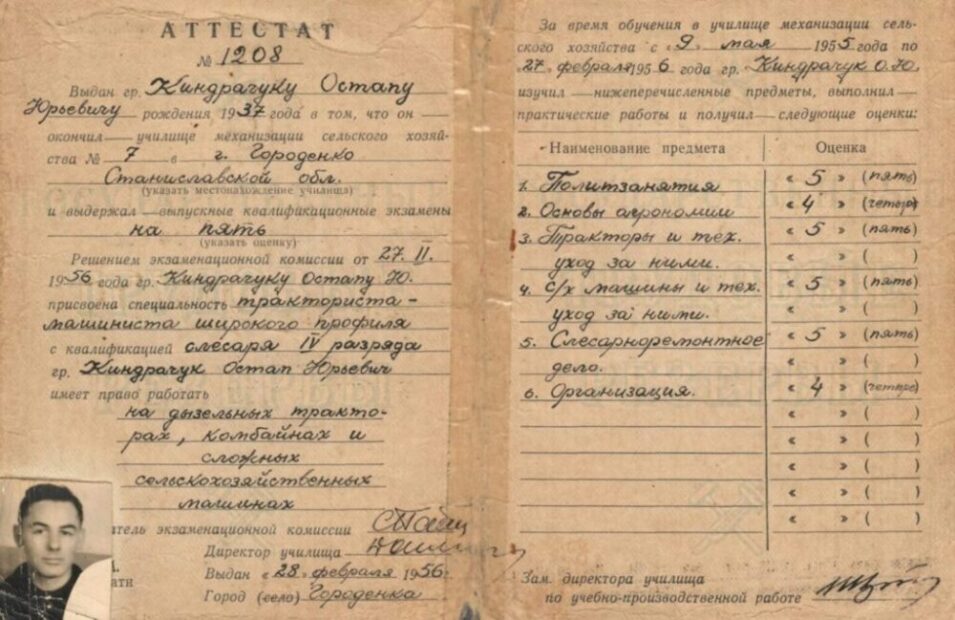 АТТЕСТАТ
№ 1208
Выдан гр. Киндрачуку Остапу
Юрьевичу рождения 1937 года в том, что он
окончил училище механизации сельского хозяй-
ства № 7 в г. Городенко
Станиславской обл.
(указать местонахождение училища)
и выдержал выпускные квалификационные экзамены
на пять
(указать оценку)
Решением экзаменационной комиссии от 27. II.
1956 года гр. Киндрачуку Остапу Ю.
присвоена специальность тракториста-
машиниста широкого профиля
с квалификацией слесаря IV разряда
гр. Киндрачук Остап Юрьевич
имеет право работать
на дызельных тракто-
рах, комбайнах и
сложных
сельскохозяйственных
машинах
тель экзаменационной комиссии
Директор училища
Выдан «28» февраля 1956 г.
Город (село) Городенка
ати
За время обучения в училище механизации сель-
ского хозяйства с «9» мая 1955 года по
«27» февраля 1956 года гр. Киндрачук О.Ю.
изучил нижеперечисленные предметы, выполнил
практические работы и получил следующие оценки:
Наименование предмета Оценка
1. Политзанятия « 5 » (пять)
2. Основы агрономии « 4 » (четыре)
3. Тракторы и тех. « 5 » (пять)
уход за ними. « » ( )
4. С/х машины и тех. « 5 » (пять)
уход за ними. « » ( )
5. Слесарноремонтное « 5 » (пять)
дело. « » ( )
6. Организация. « 4 » (четыре)
« » ( )
« » ( )
« » ( )
« » ( )
« » ( )
Зам. директора училища
по учебно-производственной работе